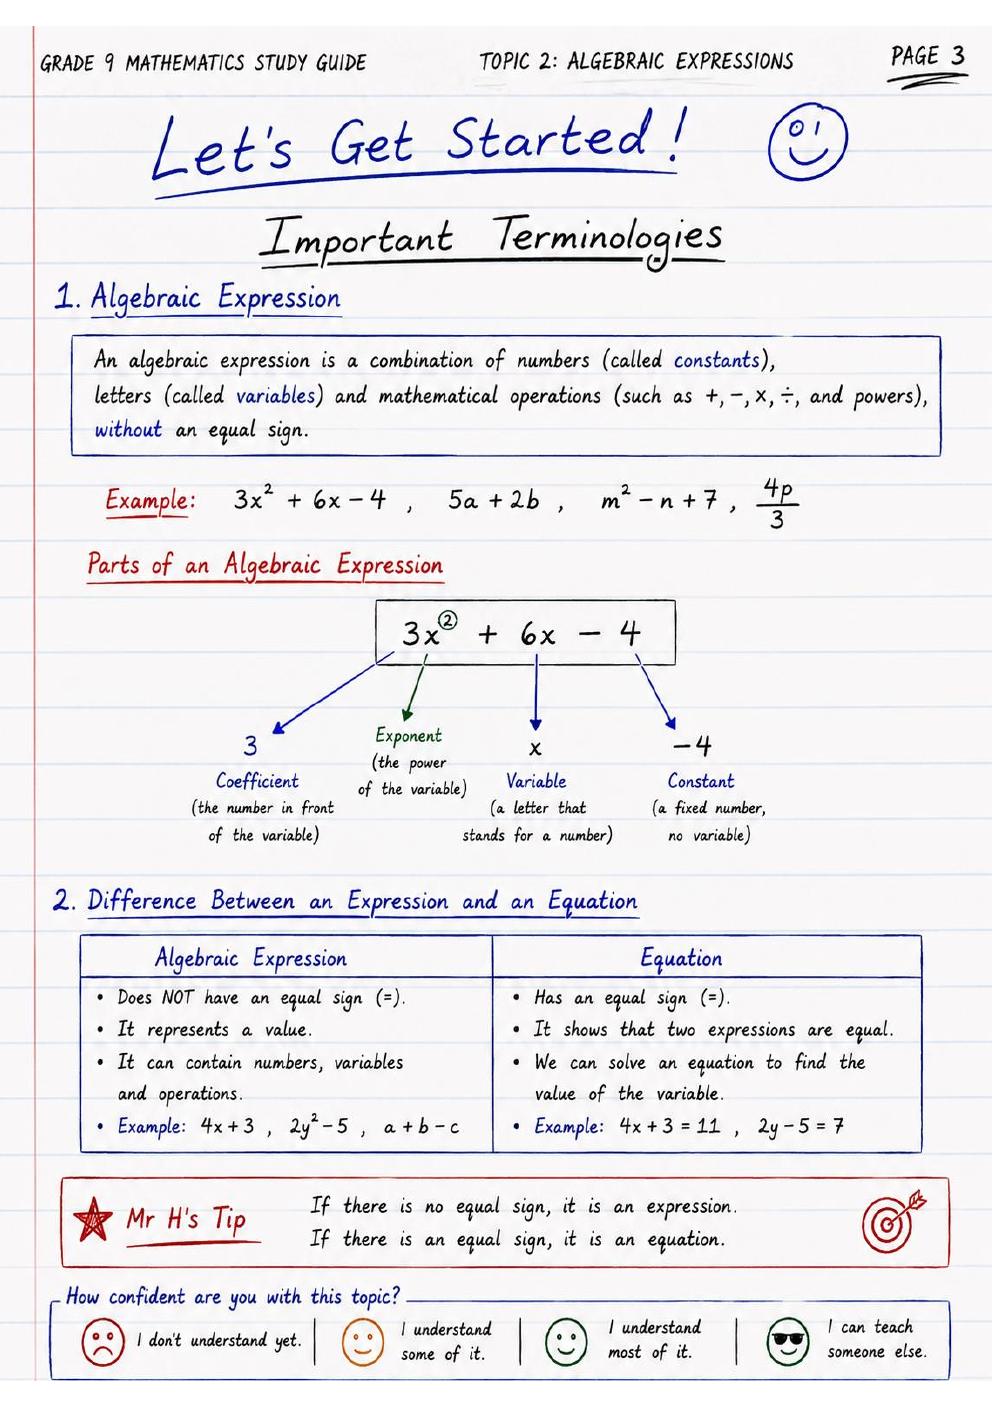 GRADE 9 MATHEMATICS STUDY GUIDE TOPIC 2: ALGEBRAIC EXPRESSIONS PAGE 3
Let's Get Started!
Important Terminologies
1. Algebraic Expression
An algebraic expression is a combination of numbers (called constants),
letters (called variables) and mathematical operations (such as +, −, ×, ÷, and powers),
without an equal sign.
Example: 3x² + 6x − 4 , 5a + 2b , m² − n + 7 , 4p/3
Parts of an Algebraic Expression
3x² + 6x − 4
3
Coefficient
(the number in front
of the variable)
Exponent
(the power
of the variable)
x
Variable
(a letter that
stands for a number)
−4
Constant
(a fixed number,
no variable)
2. Difference Between an Expression and an Equation
Algebraic Expression
• Does NOT have an equal sign (=).
• It represents a value.
• It can contain numbers, variables
and operations.
• Example: 4x + 3 , 2y² − 5 , a + b − c
Equation
• Has an equal sign (=).
• It shows that two expressions are equal.
• We can solve an equation to find the
value of the variable.
• Example: 4x + 3 = 11 , 2y − 5 = 7
Mr H's Tip
If there is no equal sign, it is an expression.
If there is an equal sign, it is an equation.
How confident are you with this topic?
I don't understand yet.
I understand
some of it.
I understand
most of it.
I can teach
someone else.